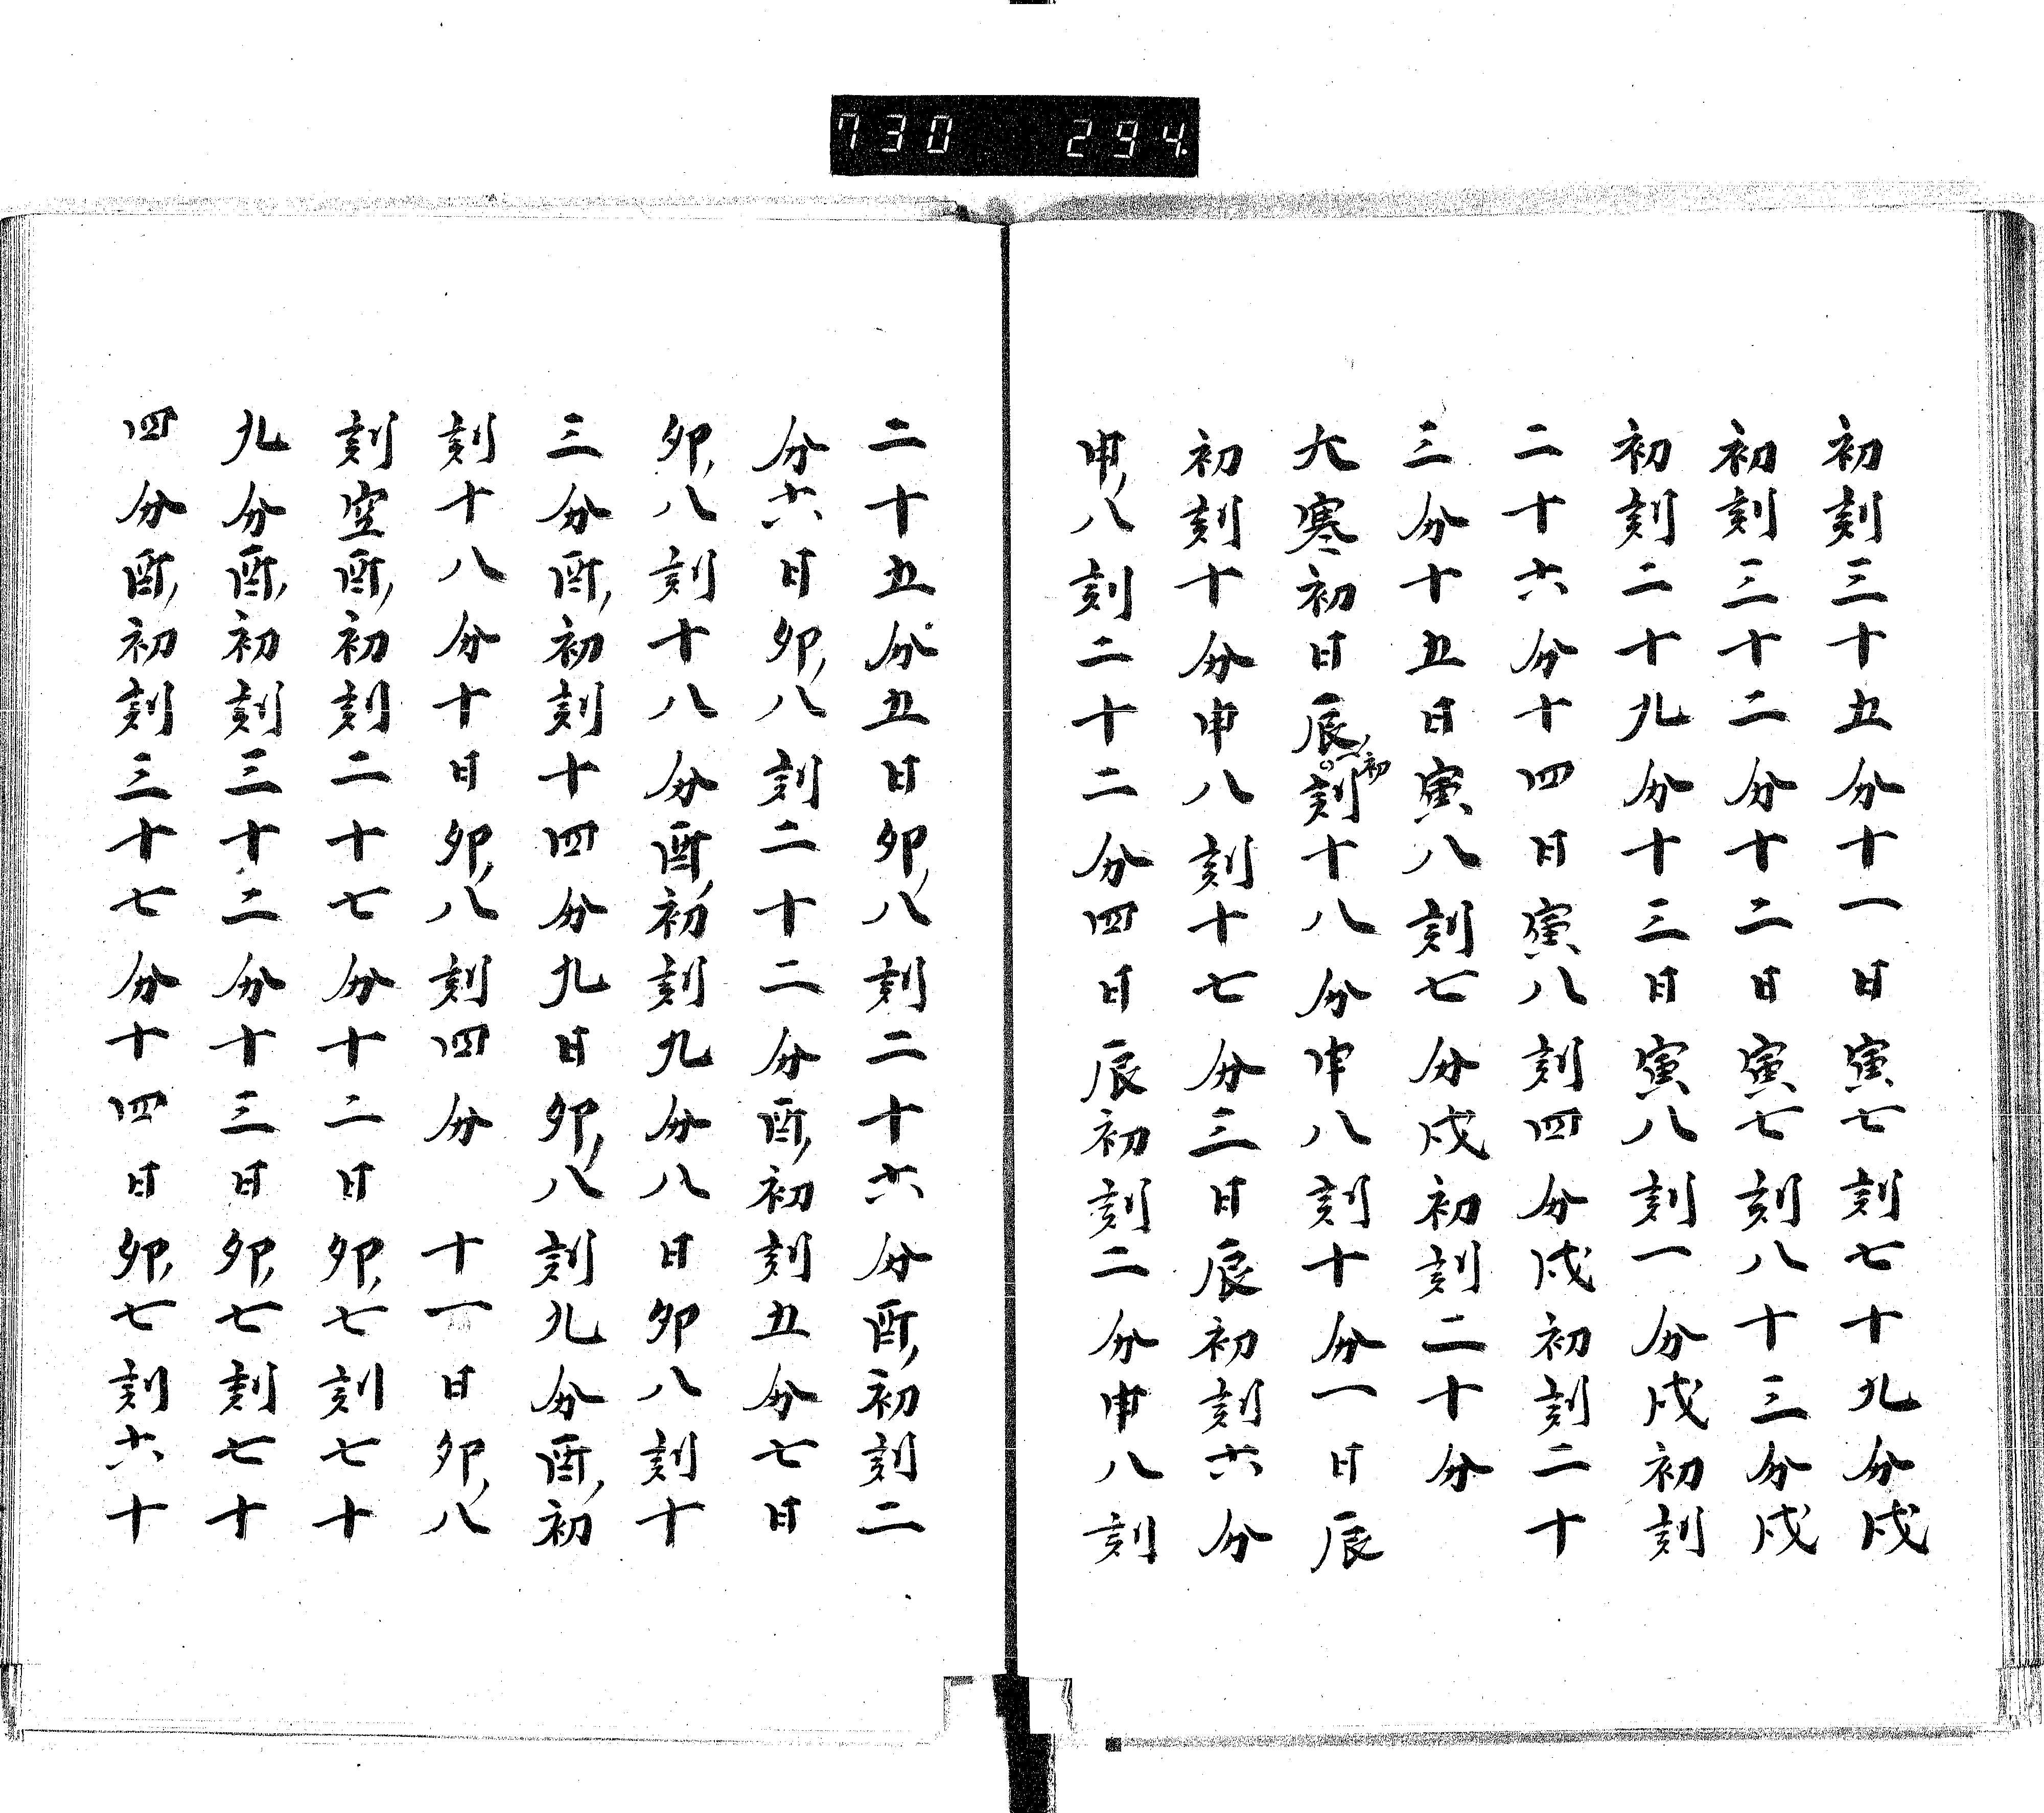 730 294
初刻三十五分十一日寅七刻七十九分戌
初刻三十二分十二日寅七刻八十三分戌
初刻二十九分十三日寅八刻一分戌初刻
二十六分十四日寅八刻四分戌初刻二十
三分十五日寅八刻七分戌初刻二十分
大寒初日辰初刻十八分申八刻十分一日辰
初刻十分申八刻十七分三日辰初刻六分
申八刻二十二分四日辰初刻二分申八刻
二十五分五日卯八刻二十六分酉初刻二
分六日卯八刻二十二分酉初刻五分七日
卯八刻十八分酉初刻九分八日卯八刻十
三分酉初刻十四分九日卯八刻九分酉初
刻十八分十日卯八刻四分 十一日卯八
刻空酉初刻二十七分十二日卯七刻七十
九分酉初刻三十二分十三日卯七刻七十
四分酉初刻三十七分十四日卯七刻六十